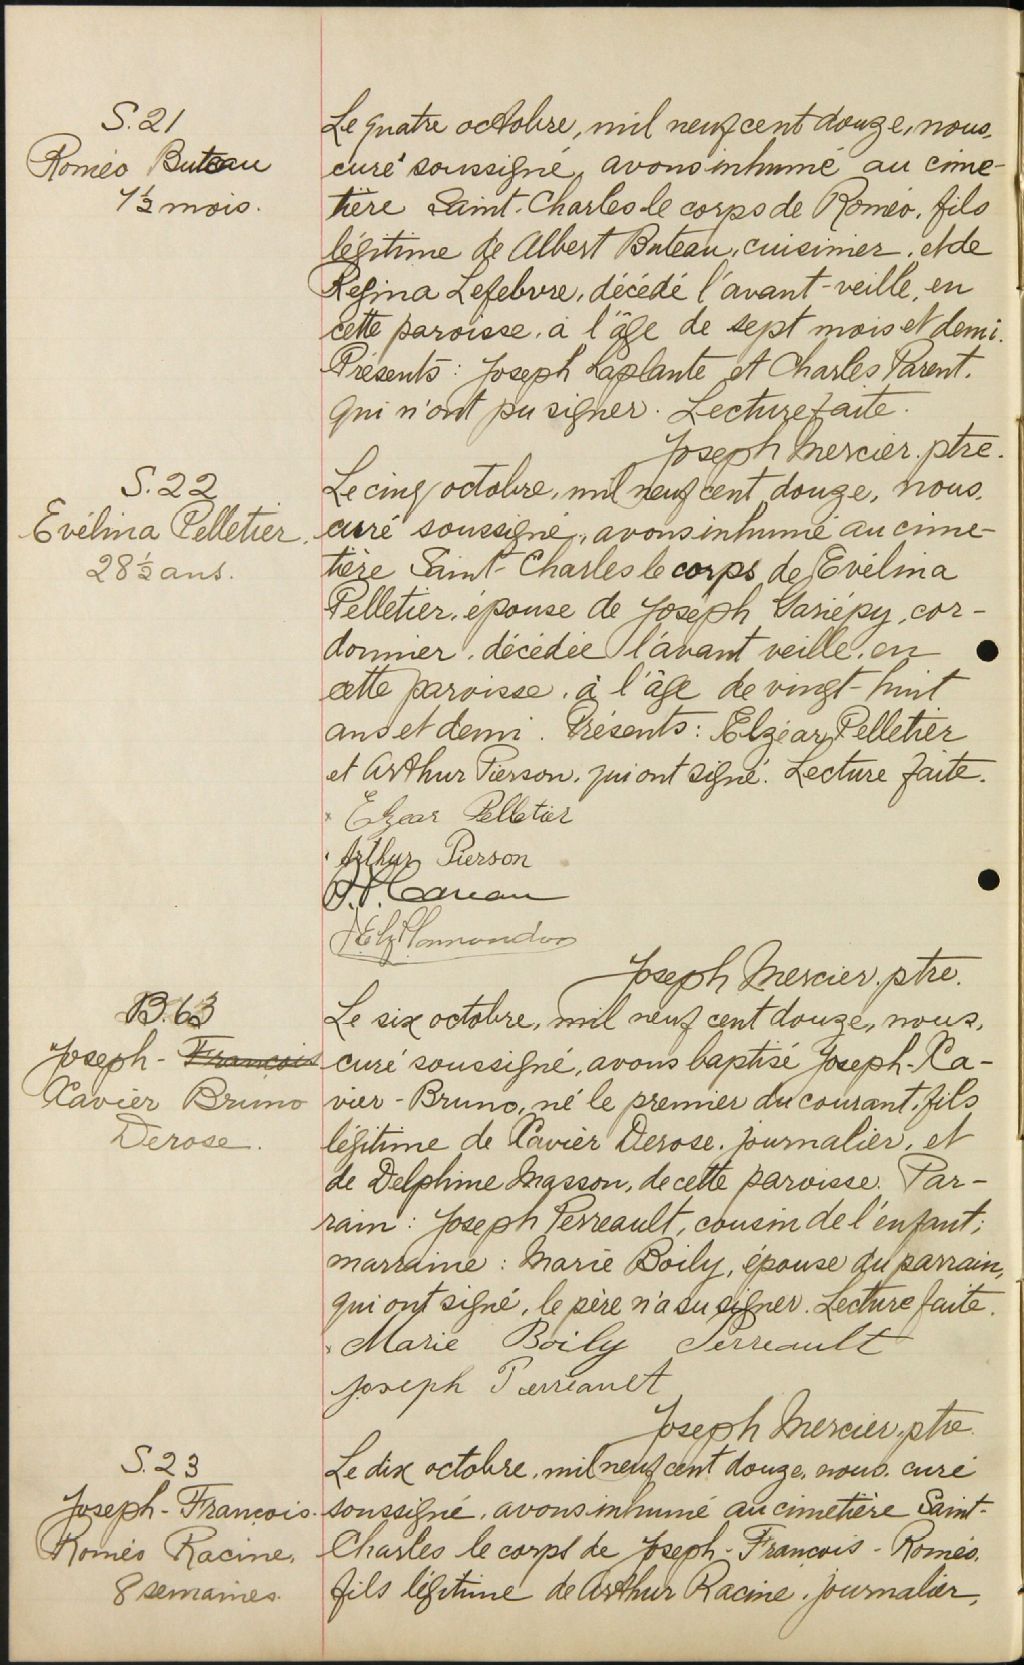 S.21
Roméo Buteau
7½ mois.
Le quatre octobre, mil neuf cent douze, nous,
curé soussigné, avons inhumé au cime-
tière Saint-Charles le corps de Roméo, fils
légitime de Albert Buteau, cuisinier, et de
Régina Lefebvre, décédé l'avant-veille, en
cette paroisse, à l'âge de sept mois et demi.
Présents: Joseph Laplante et Charles Parent,
qui n'ont pu signer. Lecture faite.
Joseph Mercier, ptre.
S.22
Evélina Pelletier,
28½ ans.
Le cinq octobre, mil neuf cent douze, nous,
curé soussigné, avons inhumé au cime-
tière Saint-Charles le corps de Evélina
Pelletier, épouse de Joseph Gariépy, cor-
donnier, décédée l'avant veille, en
cette paroisse, à l'âge de vingt-huit
ans et demi. Présents: Elzéar Pelletier
et Arthur Pierson, qui ont signé. Lecture faite.
Elzear Pelletier
Arthur Pierson
Joseph Mercier, ptre.
B.63
Joseph-François
Xavier Bruno
Derose.
Le six octobre, mil neuf cent douze, nous,
curé soussigné, avons baptisé Joseph-Xa-
vier-Bruno, né le premier du courant, fils
légitime de Xavier Derose, journalier, et
de Delphine Masson, de cette paroisse. Par-
rain: Joseph Perreault, cousin de l'enfant;
marraine: Marie Boily, épouse du parrain,
qui ont signé, le père n'a su signer. Lecture faite.
Marie Boily Perreault
Joseph Perreault
Joseph Mercier, ptre.
S.23
Joseph-François-
Roméo Racine,
8 semaines.
Le dix octobre, mil neuf cent douze, nous, curé
soussigné, avons inhumé au cimetière Saint-
Charles le corps de Joseph-François-Roméo,
fils légitime de Arthur Racine, journalier,